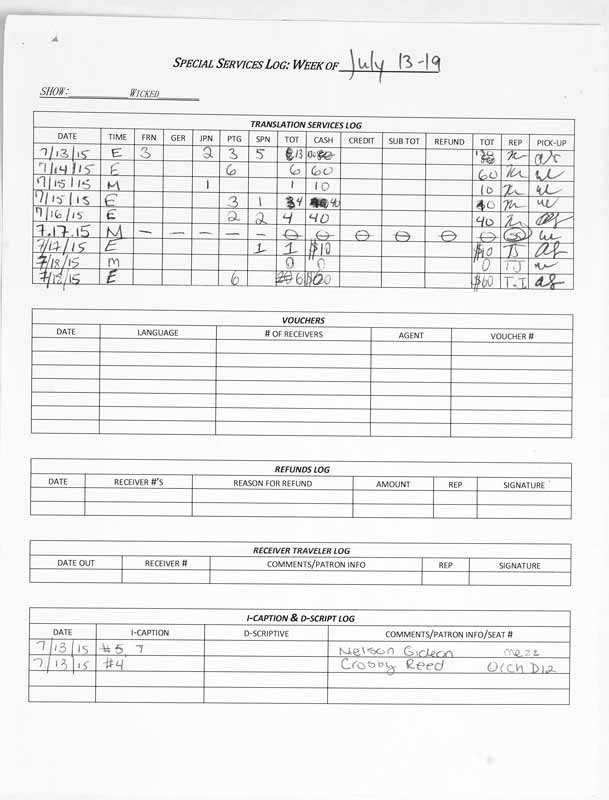 SPECIAL SERVICES LOG: WEEK OF July 13-19
SHOW: WICKED
TRANSLATION SERVICES LOG
DATE TIME FRN GER JPN PTG SPN TOT CASH CREDIT SUB TOT REFUND TOT REP PICK-UP
7/13/15 E 3 2 3 5 13
7/14/15 E 6 6 60 60
7/15/15 M 1 1 10 10
7/15/15 E 3 1 4 40 40
7/16/15 E 2 2 4 40 40
7.17.15 M – – – – – 0 0 0 0 0 0
7/17/15 E 1 1 $10 $10 TJ
7/18/15 M 0 0 0 TJ
7/18/15 E 6 6 $60 $60 T.J
VOUCHERS
DATE LANGUAGE # OF RECEIVERS AGENT VOUCHER #
REFUNDS LOG
DATE RECEIVER #'S REASON FOR REFUND AMOUNT REP SIGNATURE
RECEIVER TRAVELER LOG
DATE OUT RECEIVER # COMMENTS/PATRON INFO REP SIGNATURE
I-CAPTION & D-SCRIPT LOG
DATE I-CAPTION D-SCRIPTIVE COMMENTS/PATRON INFO/SEAT #
7/13/15 #5, 7 Nelson Gideon mezz
7/13/15 #4 Crosby Reed Orch D12